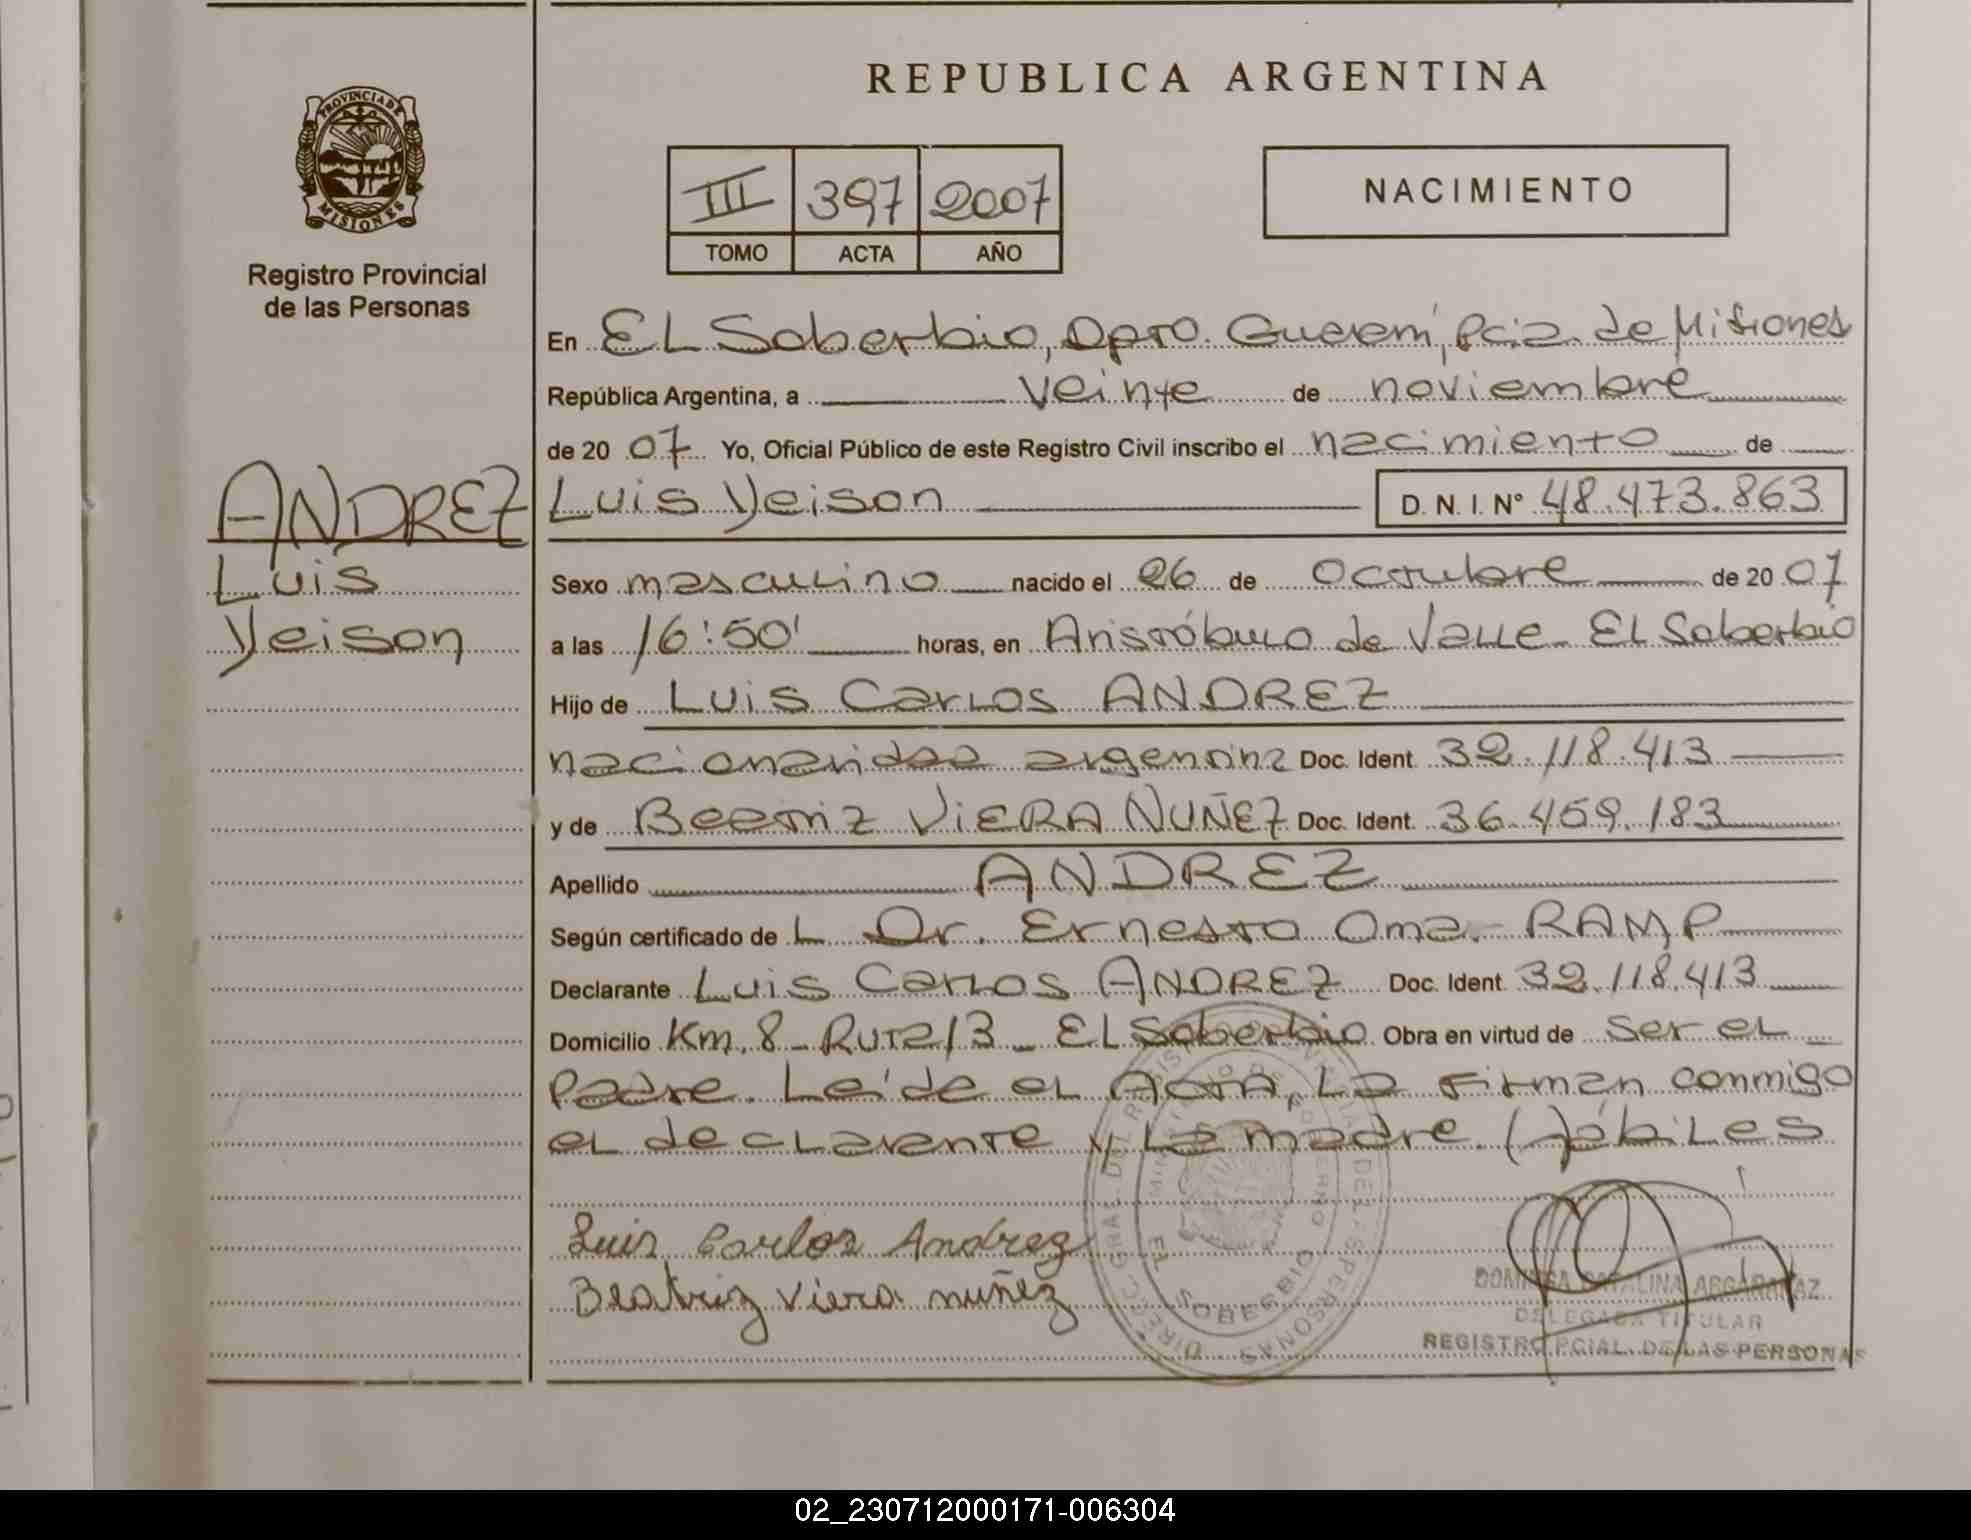 REPUBLICA ARGENTINA
PROVINCIA DE
MISIONES
Registro Provincial
de las Personas
III 397 2007
TOMO ACTA AÑO
NACIMIENTO
En EL Soberbio, Dpto. Guaraní, Pcia. de Misiones
República Argentina, a veinte de noviembre
de 2007 Yo, Oficial Público de este Registro Civil inscribo el nacimiento de
ANDREZ
Luis Yeison D. N. I. N° 48.473.863
Luis
Yeison
Sexo masculino nacido el 26 de Octubre de 2007
a las 16:50' horas, en Aristóbulo de Valle - EL Soberbio
Hijo de Luis Carlos ANDREZ
nacionalidad argentina Doc. Ident. 32.118.413
y de Beatriz VIERA NUÑEZ Doc. Ident. 36.459.183
Apellido ANDREZ
Según certificado de L Dr. Ernesto Oma. RAMP
Declarante Luis Carlos ANDREZ Doc. Ident. 32.118.413
Domicilio Km. 8 - Ruta 13 - EL Soberbio Obra en virtud de ser el
Padre. Leída el ACTA, La firman conmigo
el declarante y La madre. (H)ábiles
Luis Carlos Andrez
Beatriz Viera nuñez
EL SOBERBIO
DELEGADA TITULAR
REGISTRO PCIAL. DE LAS PERSONAS
02_230712000171-006304